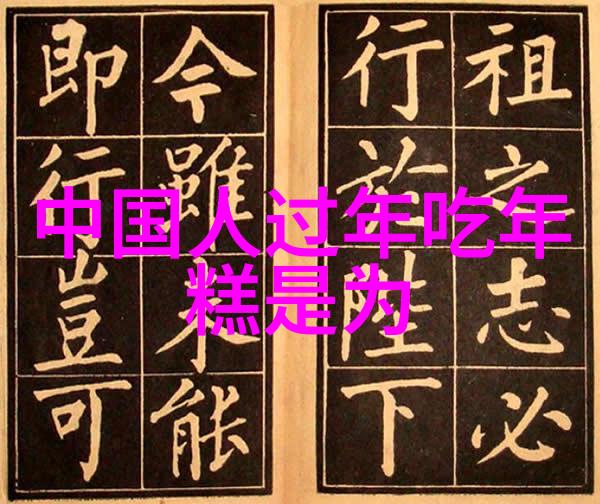 中国人过年吃年
糕是为
祖之志必
行於陛下
今雖未能
即行豈可